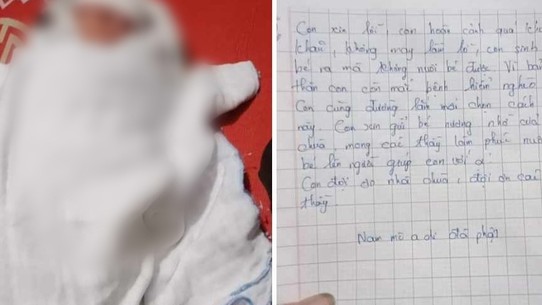 Con xin lỗi, con hoàn cảnh quá khó
khăn, không may lầm lỡ, con sinh
bé ra mà không nuôi bé được vì bản
thân con còn mắc bệnh hiểm nghèo
Con cùng đường lắm mới chọn cách
này. Con xin gửi bé nương nhờ cửa
chùa, mong các thầy làm phúc nuôi
bé lên người giúp con với ạ
Con đội ơn nhà chùa, đội ơn các
thầy
Nam mô a di đà phật